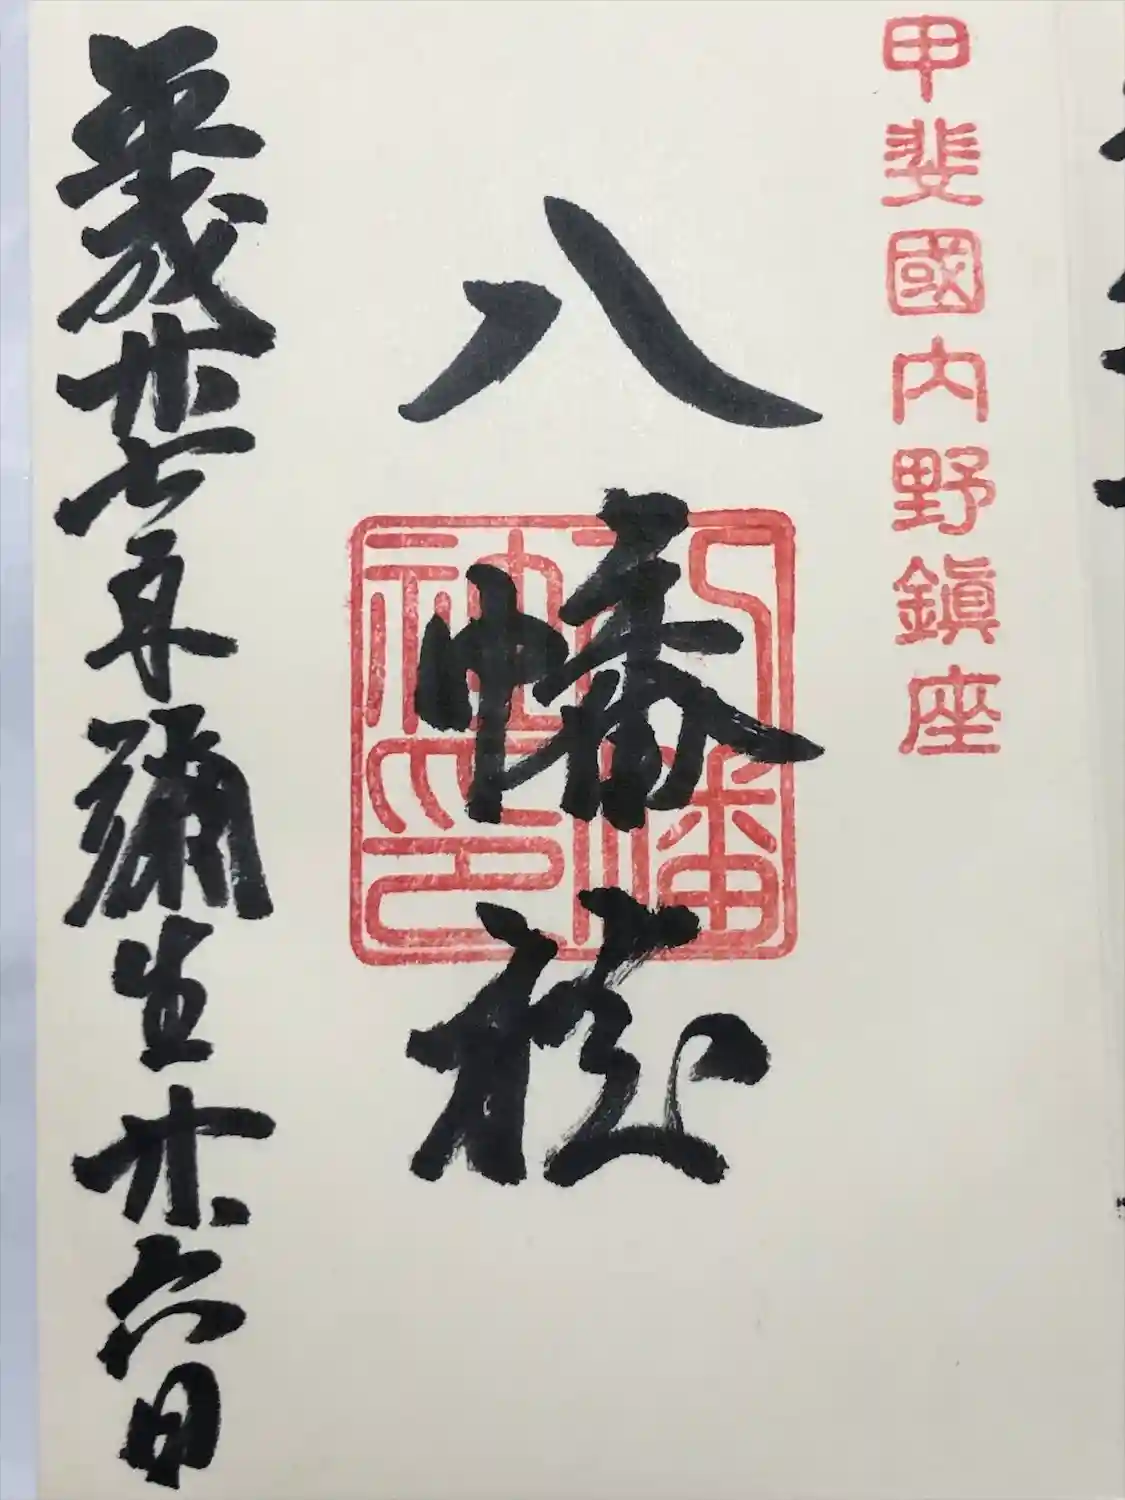 甲斐國内野鎭座
八幡
八幡神印
平成廿七年彌生廿六日